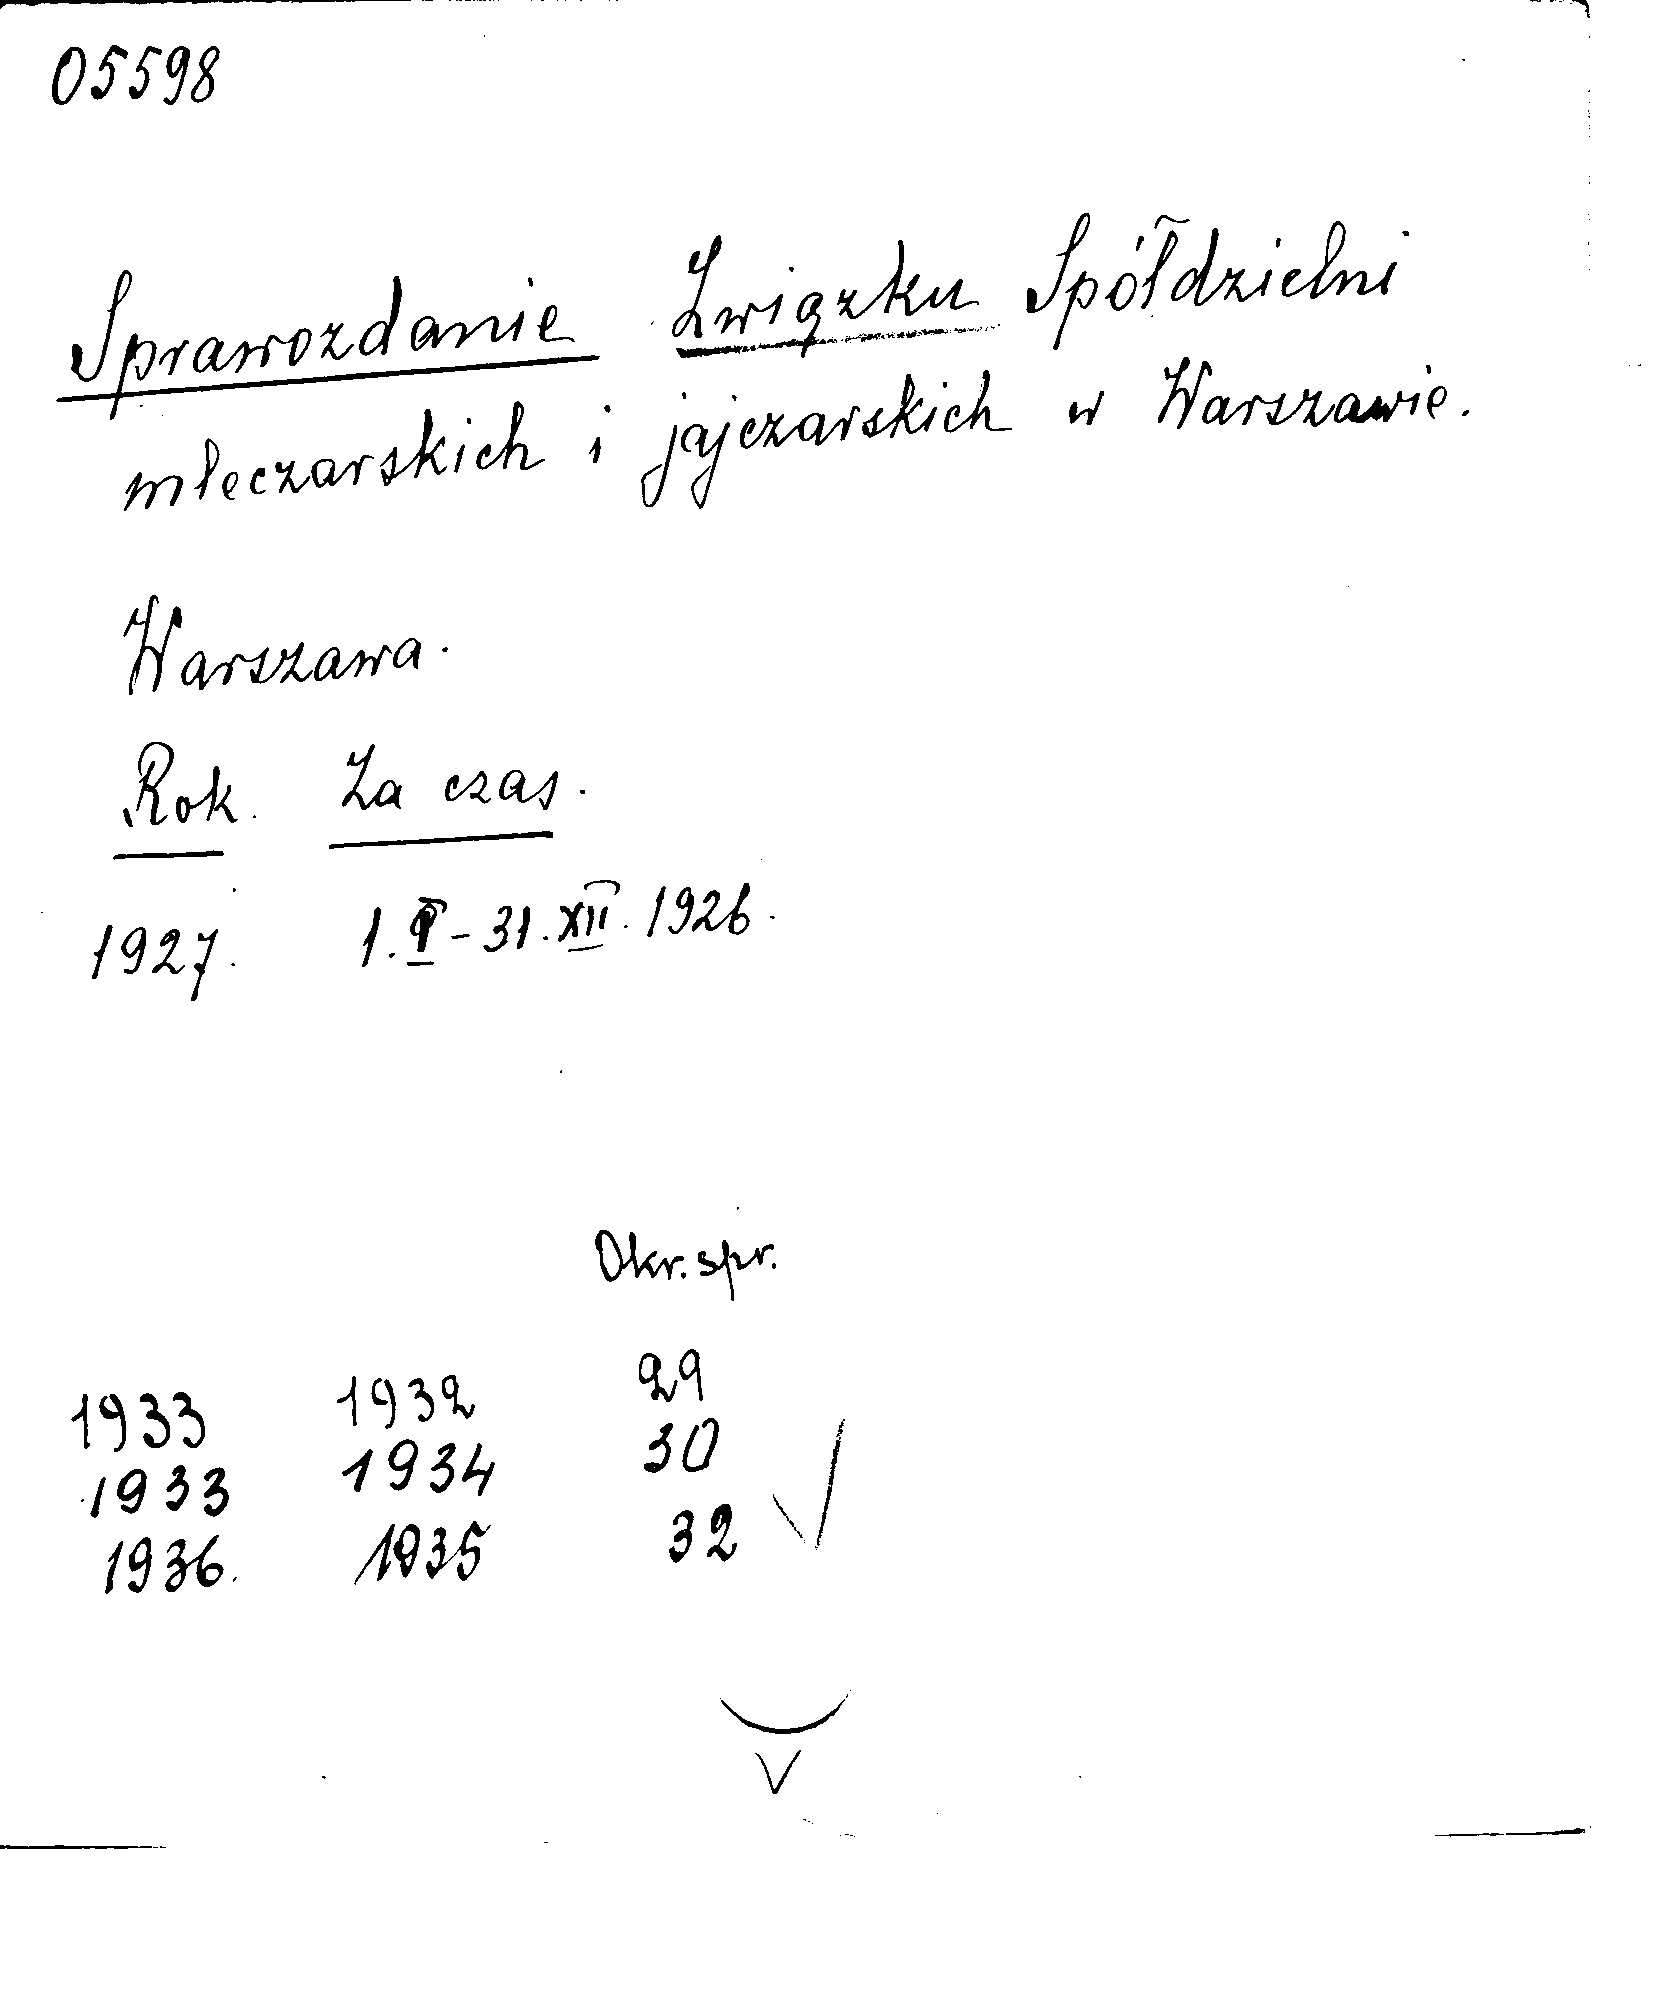 05598
Sprawozdanie Związku Spółdzielni
mleczarskich i jajczarskich w Warszawie.
Warszawa.
Rok. Za czas.
1927. 1.I-31.XII.1926.
Okr. spr.
1933 1932 29
1933 1934 30
1936. 1935 32